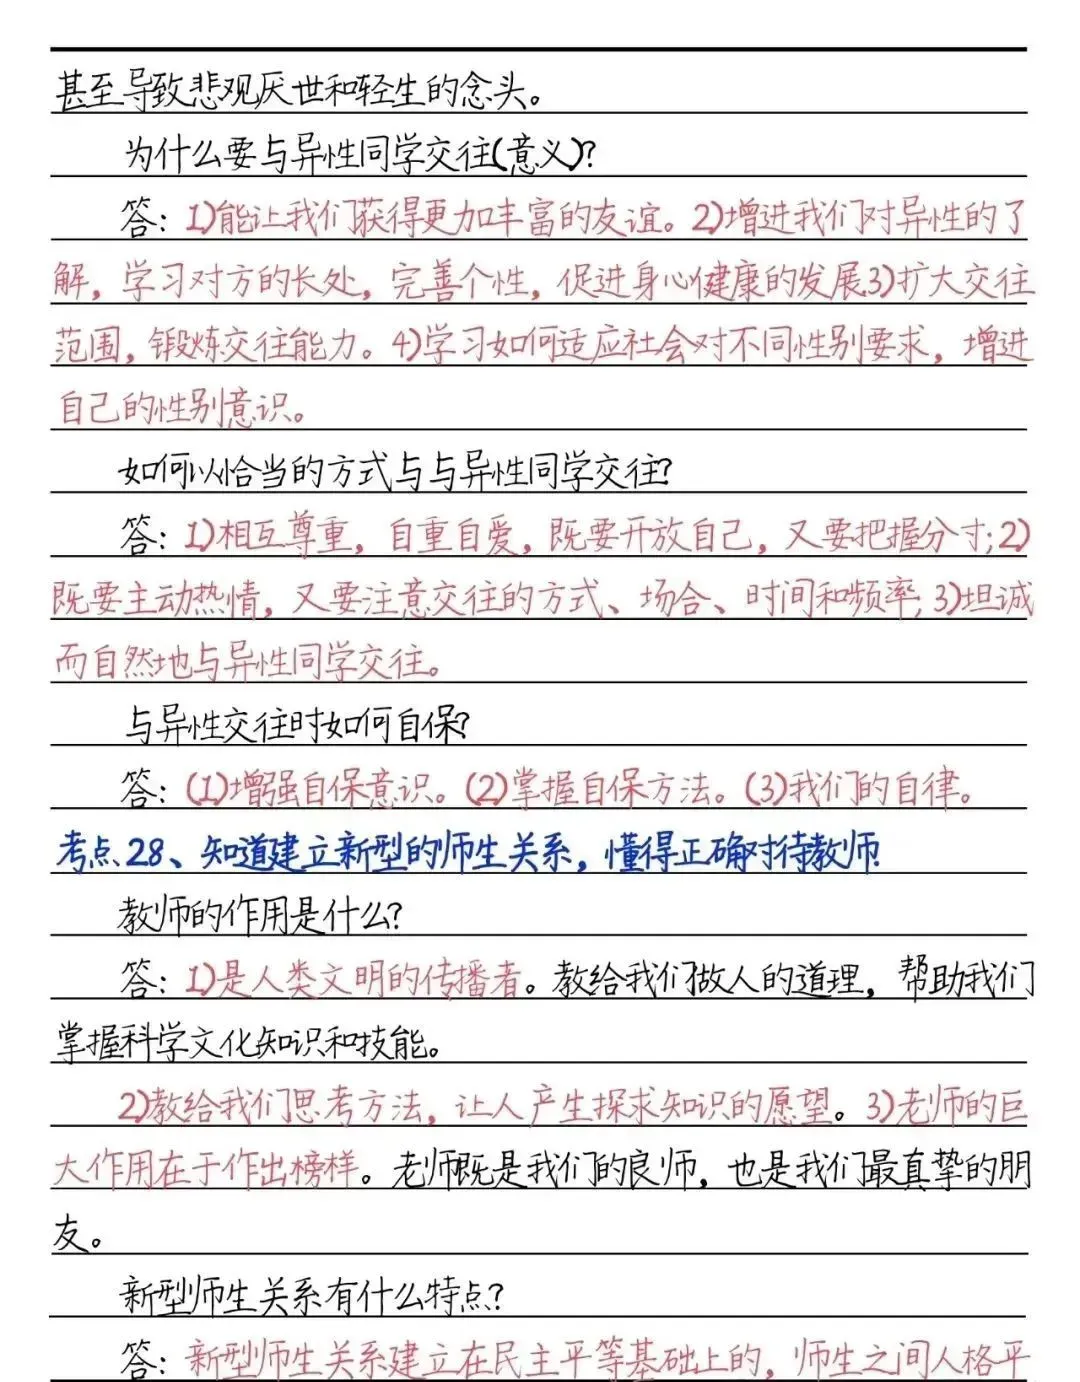 甚至导致悲观厌世和轻生的念头。
为什么要与异性同学交往(意义)?
答：1)能让我们获得更加丰富的友谊。2)增进我们对异性的了
解，学习对方的长处，完善个性，促进身心健康的发展3)扩大交往
范围，锻炼交往能力。4)学习如何适应社会对不同性别要求，增进
自己的性别意识。
如何以恰当的方式与与异性同学交往?
答：1)相互尊重，自重自爱，既要开放自己，又要把握分寸;2)
既要主动热情，又要注意交往的方式、场合、时间和频率;3)坦诚
而自然地与异性同学交往。
与异性交往时如何自保?
答：(1)增强自保意识。(2)掌握自保方法。(3)我们的自律。
考点.28、知道建立新型的师生关系，懂得正确对待教师
教师的作用是什么?
答：1)是人类文明的传播者。教给我们做人的道理，帮助我们
掌握科学文化知识和技能。
2)教给我们思考方法，让人产生探求知识的愿望。3)老师的巨
大作用在于作出榜样。老师既是我们的良师，也是我们最真挚的朋
友。
新型师生关系有什么特点?
答：新型师生关系建立在民主平等基础上的，师生之间人格平